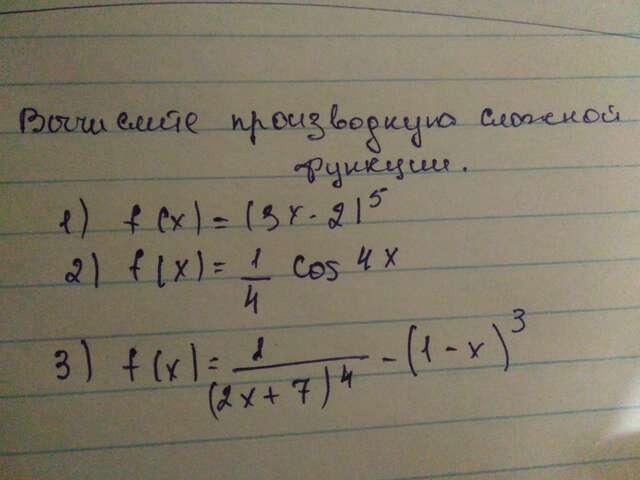 Вычислите производную сложной
функции.
1) f(x) = (3x - 2)^5
2) f(x) = 1/4 cos 4x
3) f(x) = 1/(2x + 7)^4 - (1 - x)^3